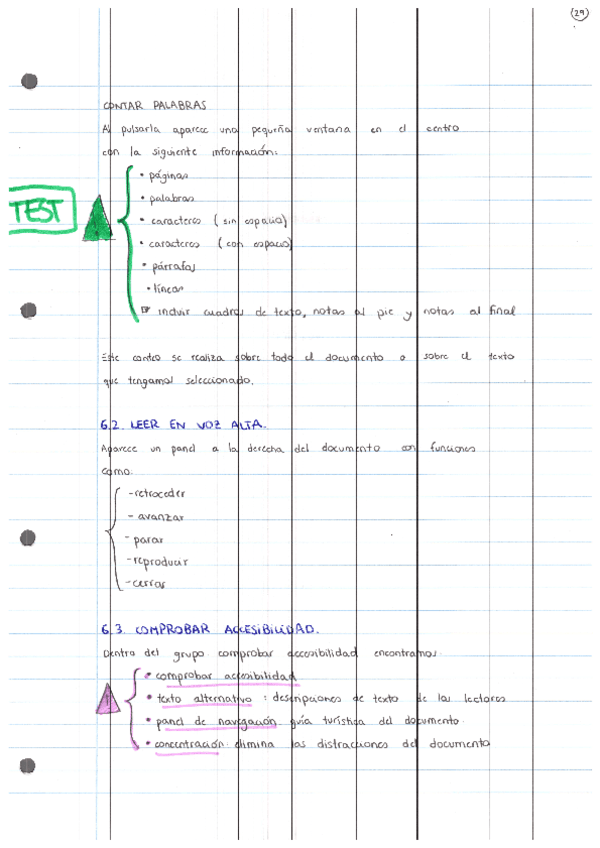 29
CONTAR PALABRAS
Al pulsarla aparece una pequeña ventana en el centro
con la siguiente información:
• páginas
• palabras
TEST
• caracteres (sin espacio)
• caracteres (con espacio)
• párrafos
• líneas
incluir cuadros de texto, notas al pie y notas al final
Este conteo se realiza sobre todo el documento o sobre el texto
que tengamos seleccionado.
6.2. LEER EN VOZ ALTA.
Aparece un panel a la derecha del documento con funciones
como:
- retroceder
- avanzar
- parar
- reproducir
- cerrar
6.3. COMPROBAR ACCESIBILIDAD.
Dentro del grupo comprobar accesibilidad encontramos:
• comprobar accesibilidad
• texto alternativo: descripciones de texto de los lectores
• panel de navegación: guía turística del documento.
• concentración: elimina las distracciones del documento